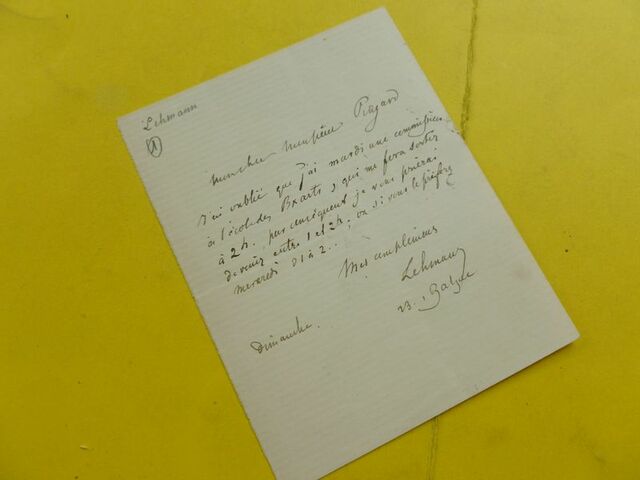 Lehmann
1
Mon cher Monsieur Pugard
J'ai oublié que j'ai mardi une commission
à l'école des Bxarts, qui me fera sortir
à 2 h. par conséquent je vous prierai
de venir entre 1 et 2 h. ; ou si vous le préférez
mercredi d 1 à 2 . . ;
Mes compliments
Lehmann
Dimanche. 23 . , Balzac